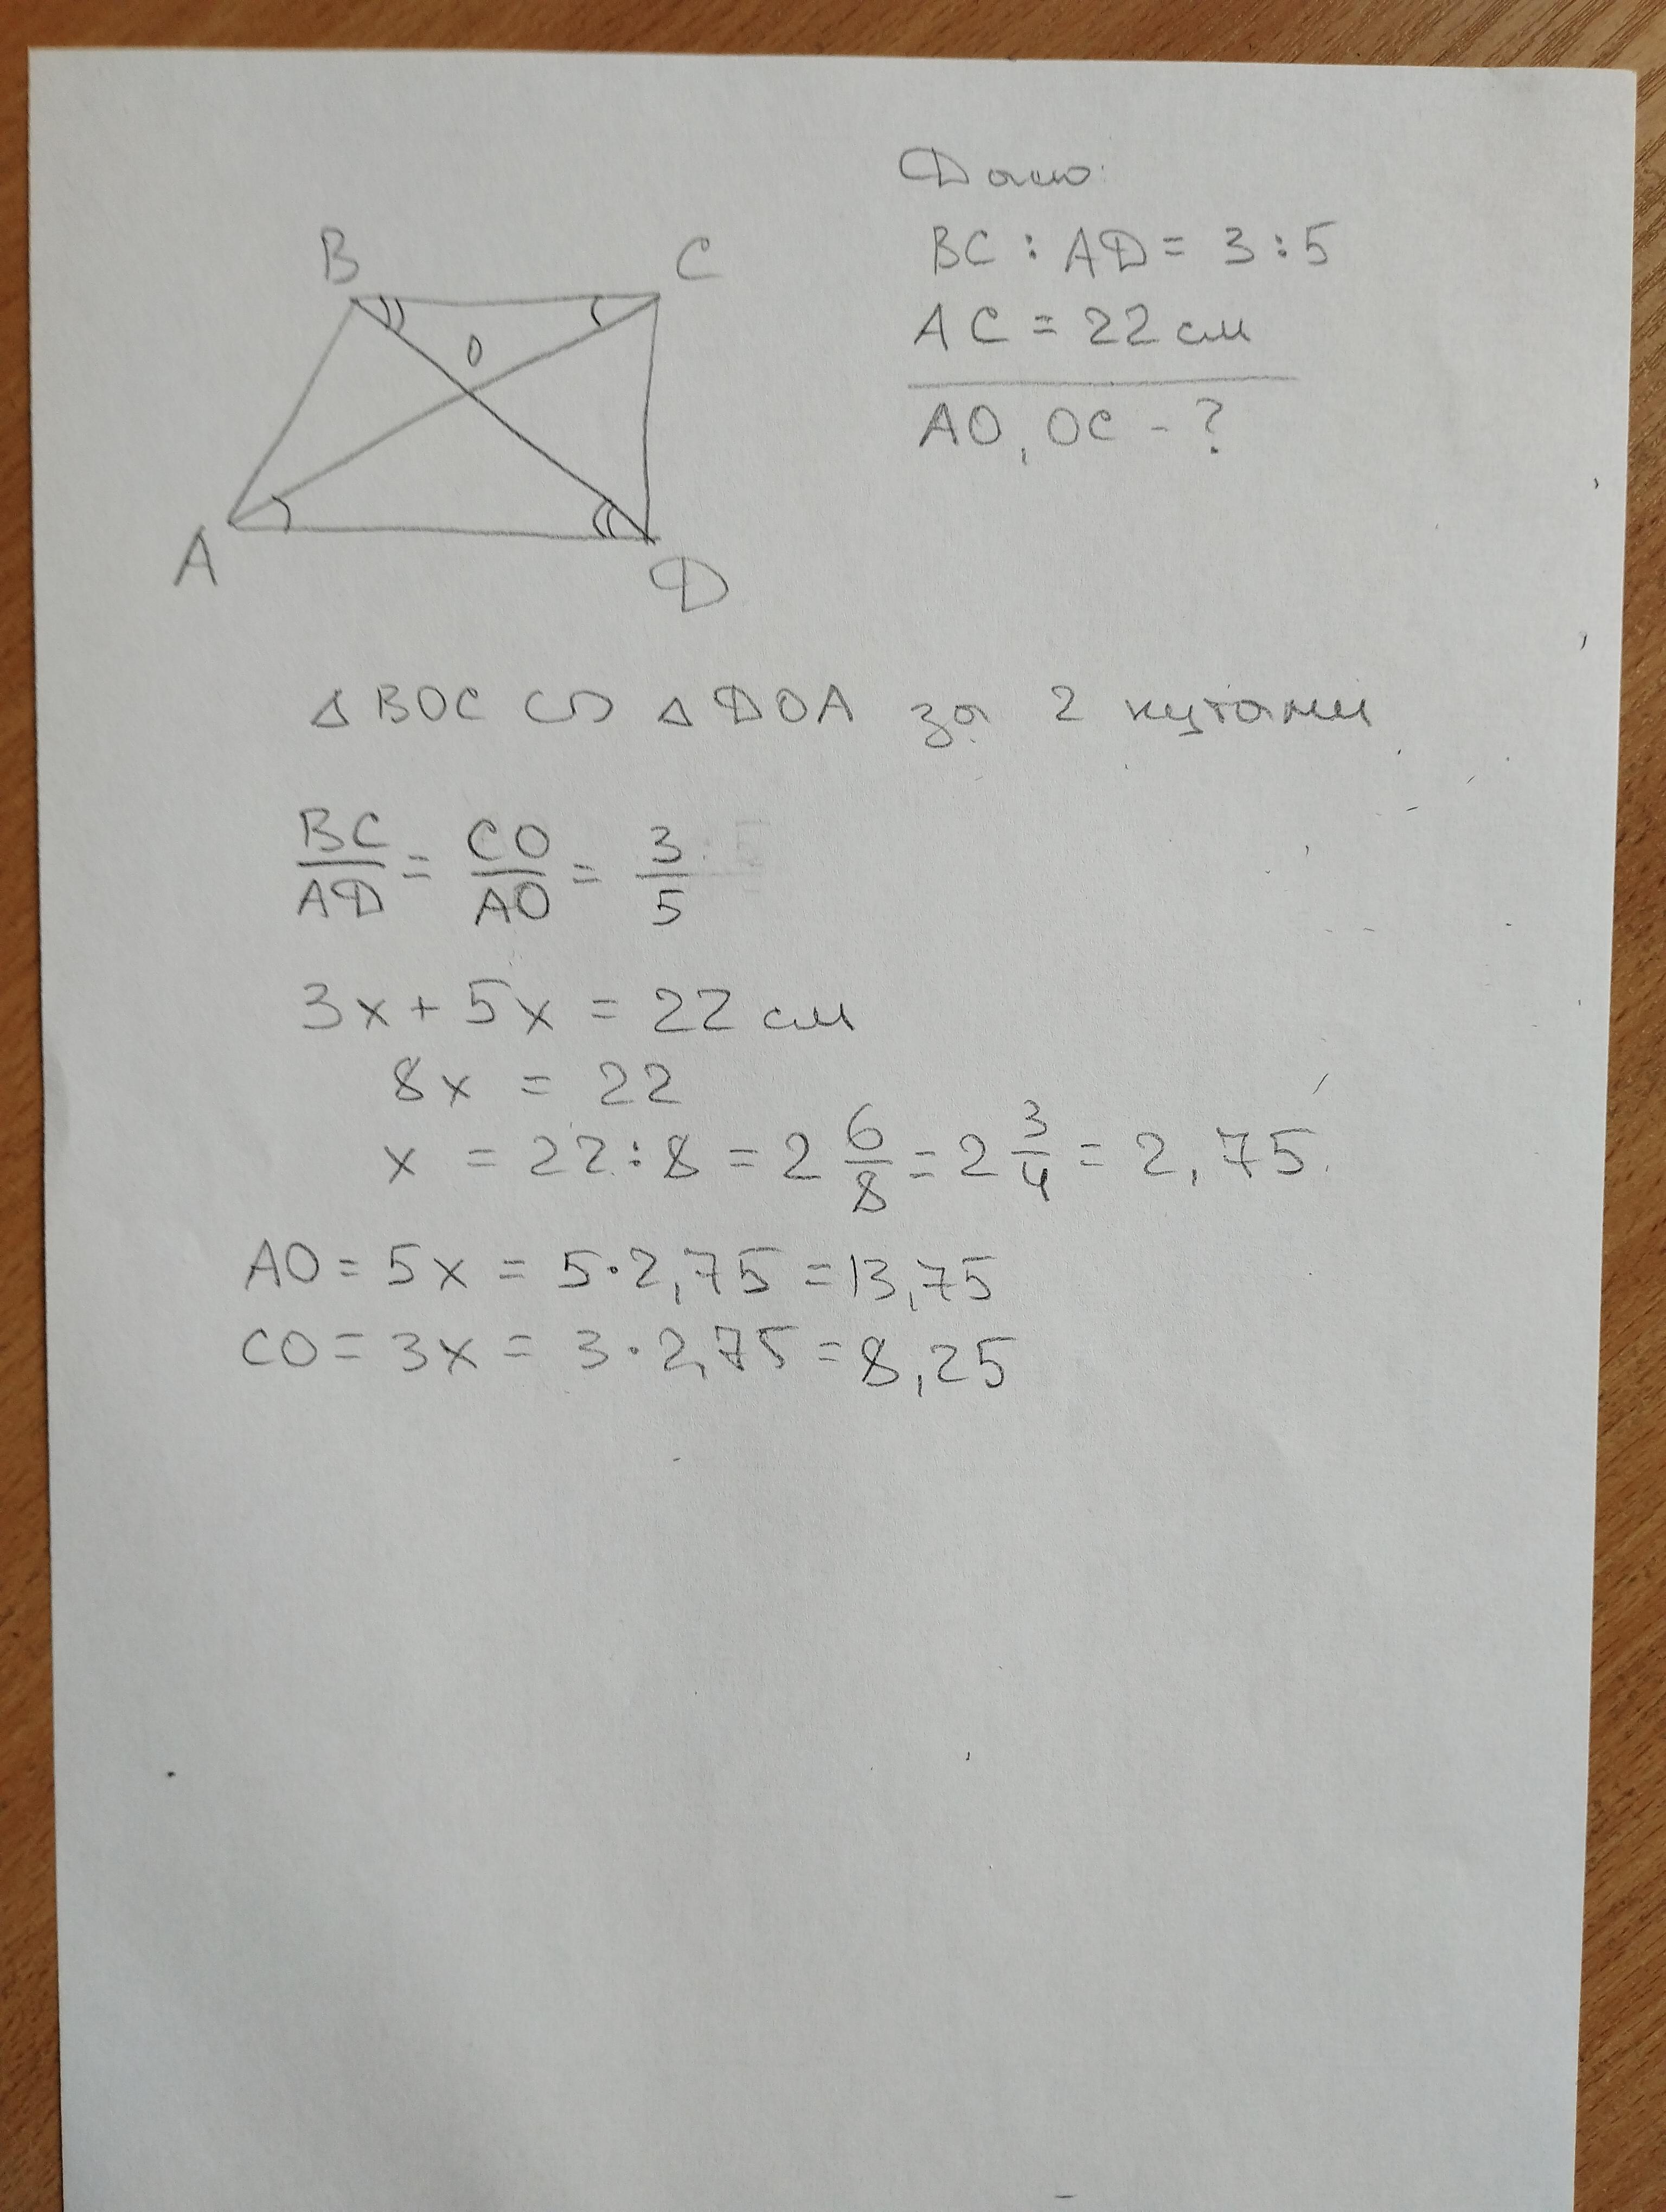 B
C
O
A
D
Дано:
BC : AD = 3 : 5
AC = 22 см
AO, OC - ?
△ BOC ∽ △ DOA за 2 кутами
BC/AD = CO/AO = 3/5
3x + 5x = 22 см
8x = 22
x = 22 : 8 = 2 6/8 = 2 3/4 = 2,75
AO = 5x = 5 · 2,75 = 13,75
CO = 3x = 3 · 2,75 = 8,25